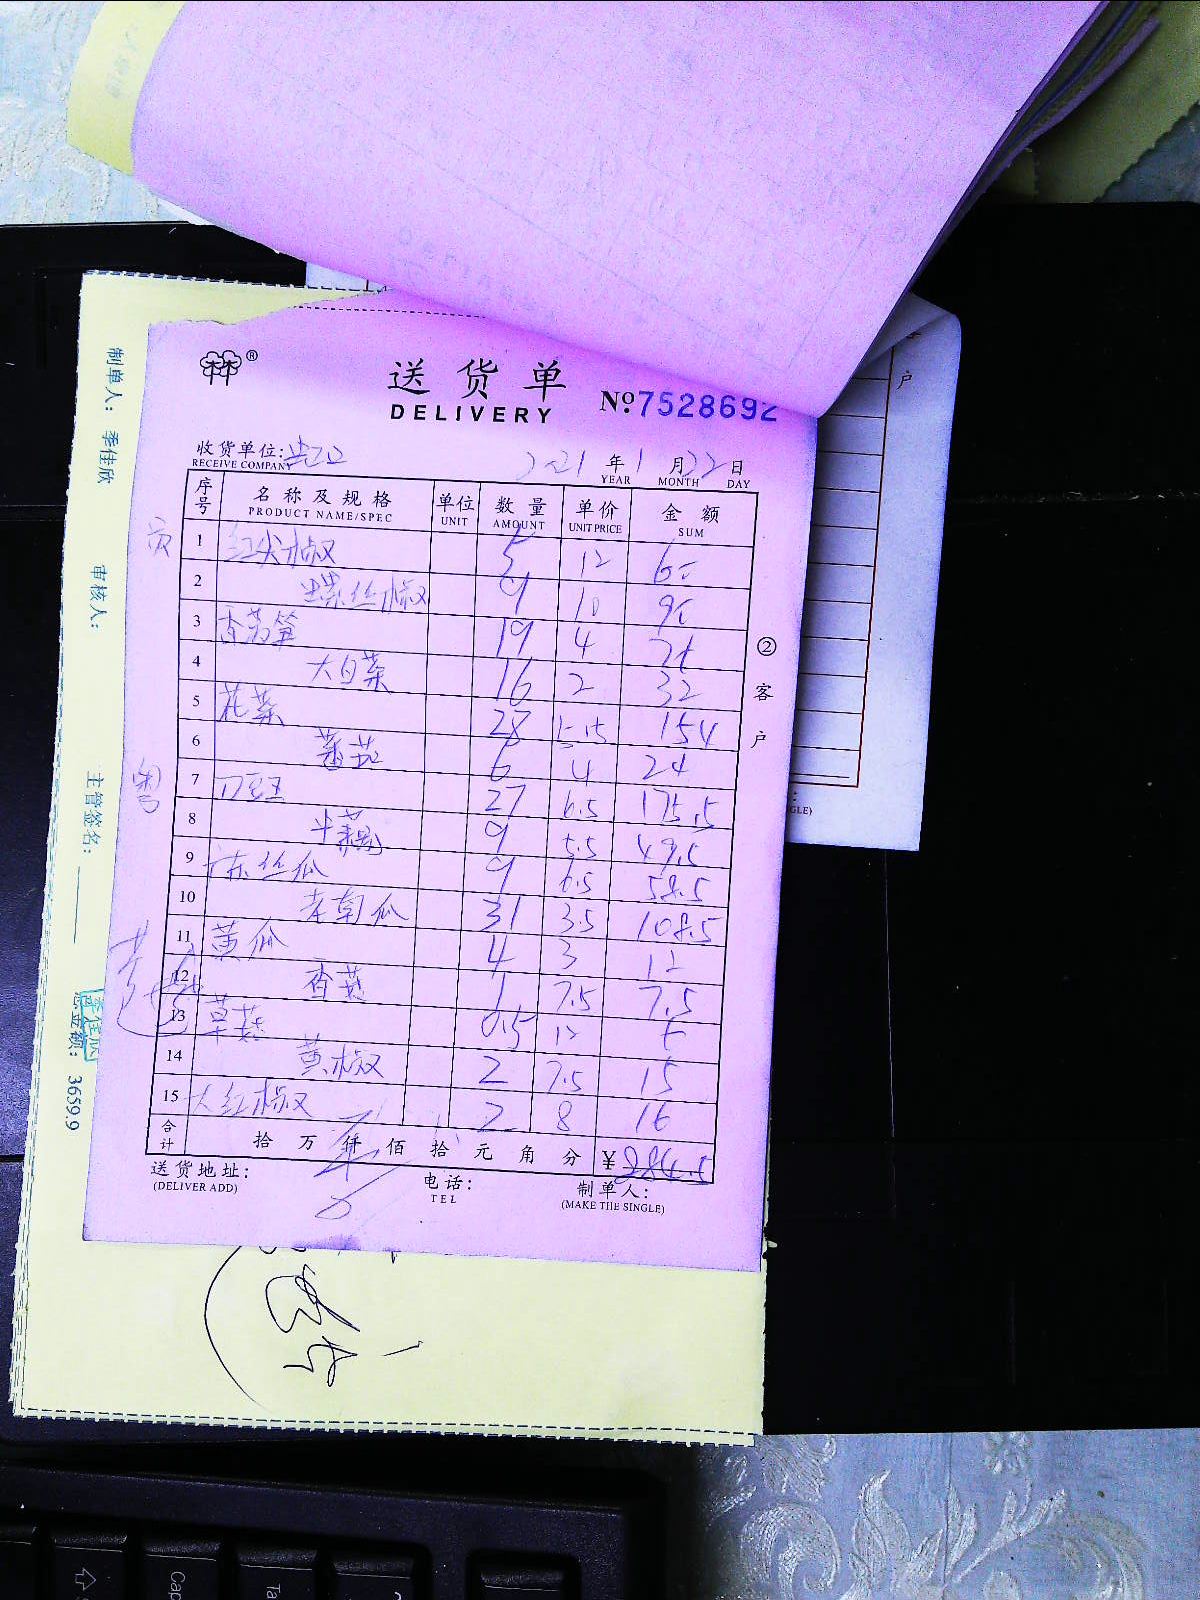 送货单
DELIVERY
№7528692
收货单位:
RECEIVE COMPANY
2021 年 1 月 22 日
YEAR MONTH DAY
序号 名称及规格 单位 数量 单价 金额
PRODUCT NAME/SPEC UNIT AMOUNT UNIT PRICE SUM
1 红尖椒 5 12 60
2 螺丝椒 9 10 90
3 莴笋 19 4
4 大白菜 16 2 32
5 花菜 28 154
6 蕃茄 6 4 24
7 刀豆 27 6.5 175.5
8 9 5.5 49.5
9 广东丝瓜 9 6.5 58.5
10 老南瓜 31 3.5 108.5
11 黄瓜 4 3 12
12 香菇 1 7.5 7.5
13 草菇 0.5 12
14 黄椒 2 7.5 15
15 大红椒 2 8 16
合计 拾 万 仟 佰 拾 元 角 分 ¥884.5
送货地址: 电话: 制单人:
(DELIVER ADD) TEL (MAKE THE SINGLE)
②客户
制单人: 季佳欣
审核人:
主管签名:
季佳欣
总金额: 3659.9
户
GLE)